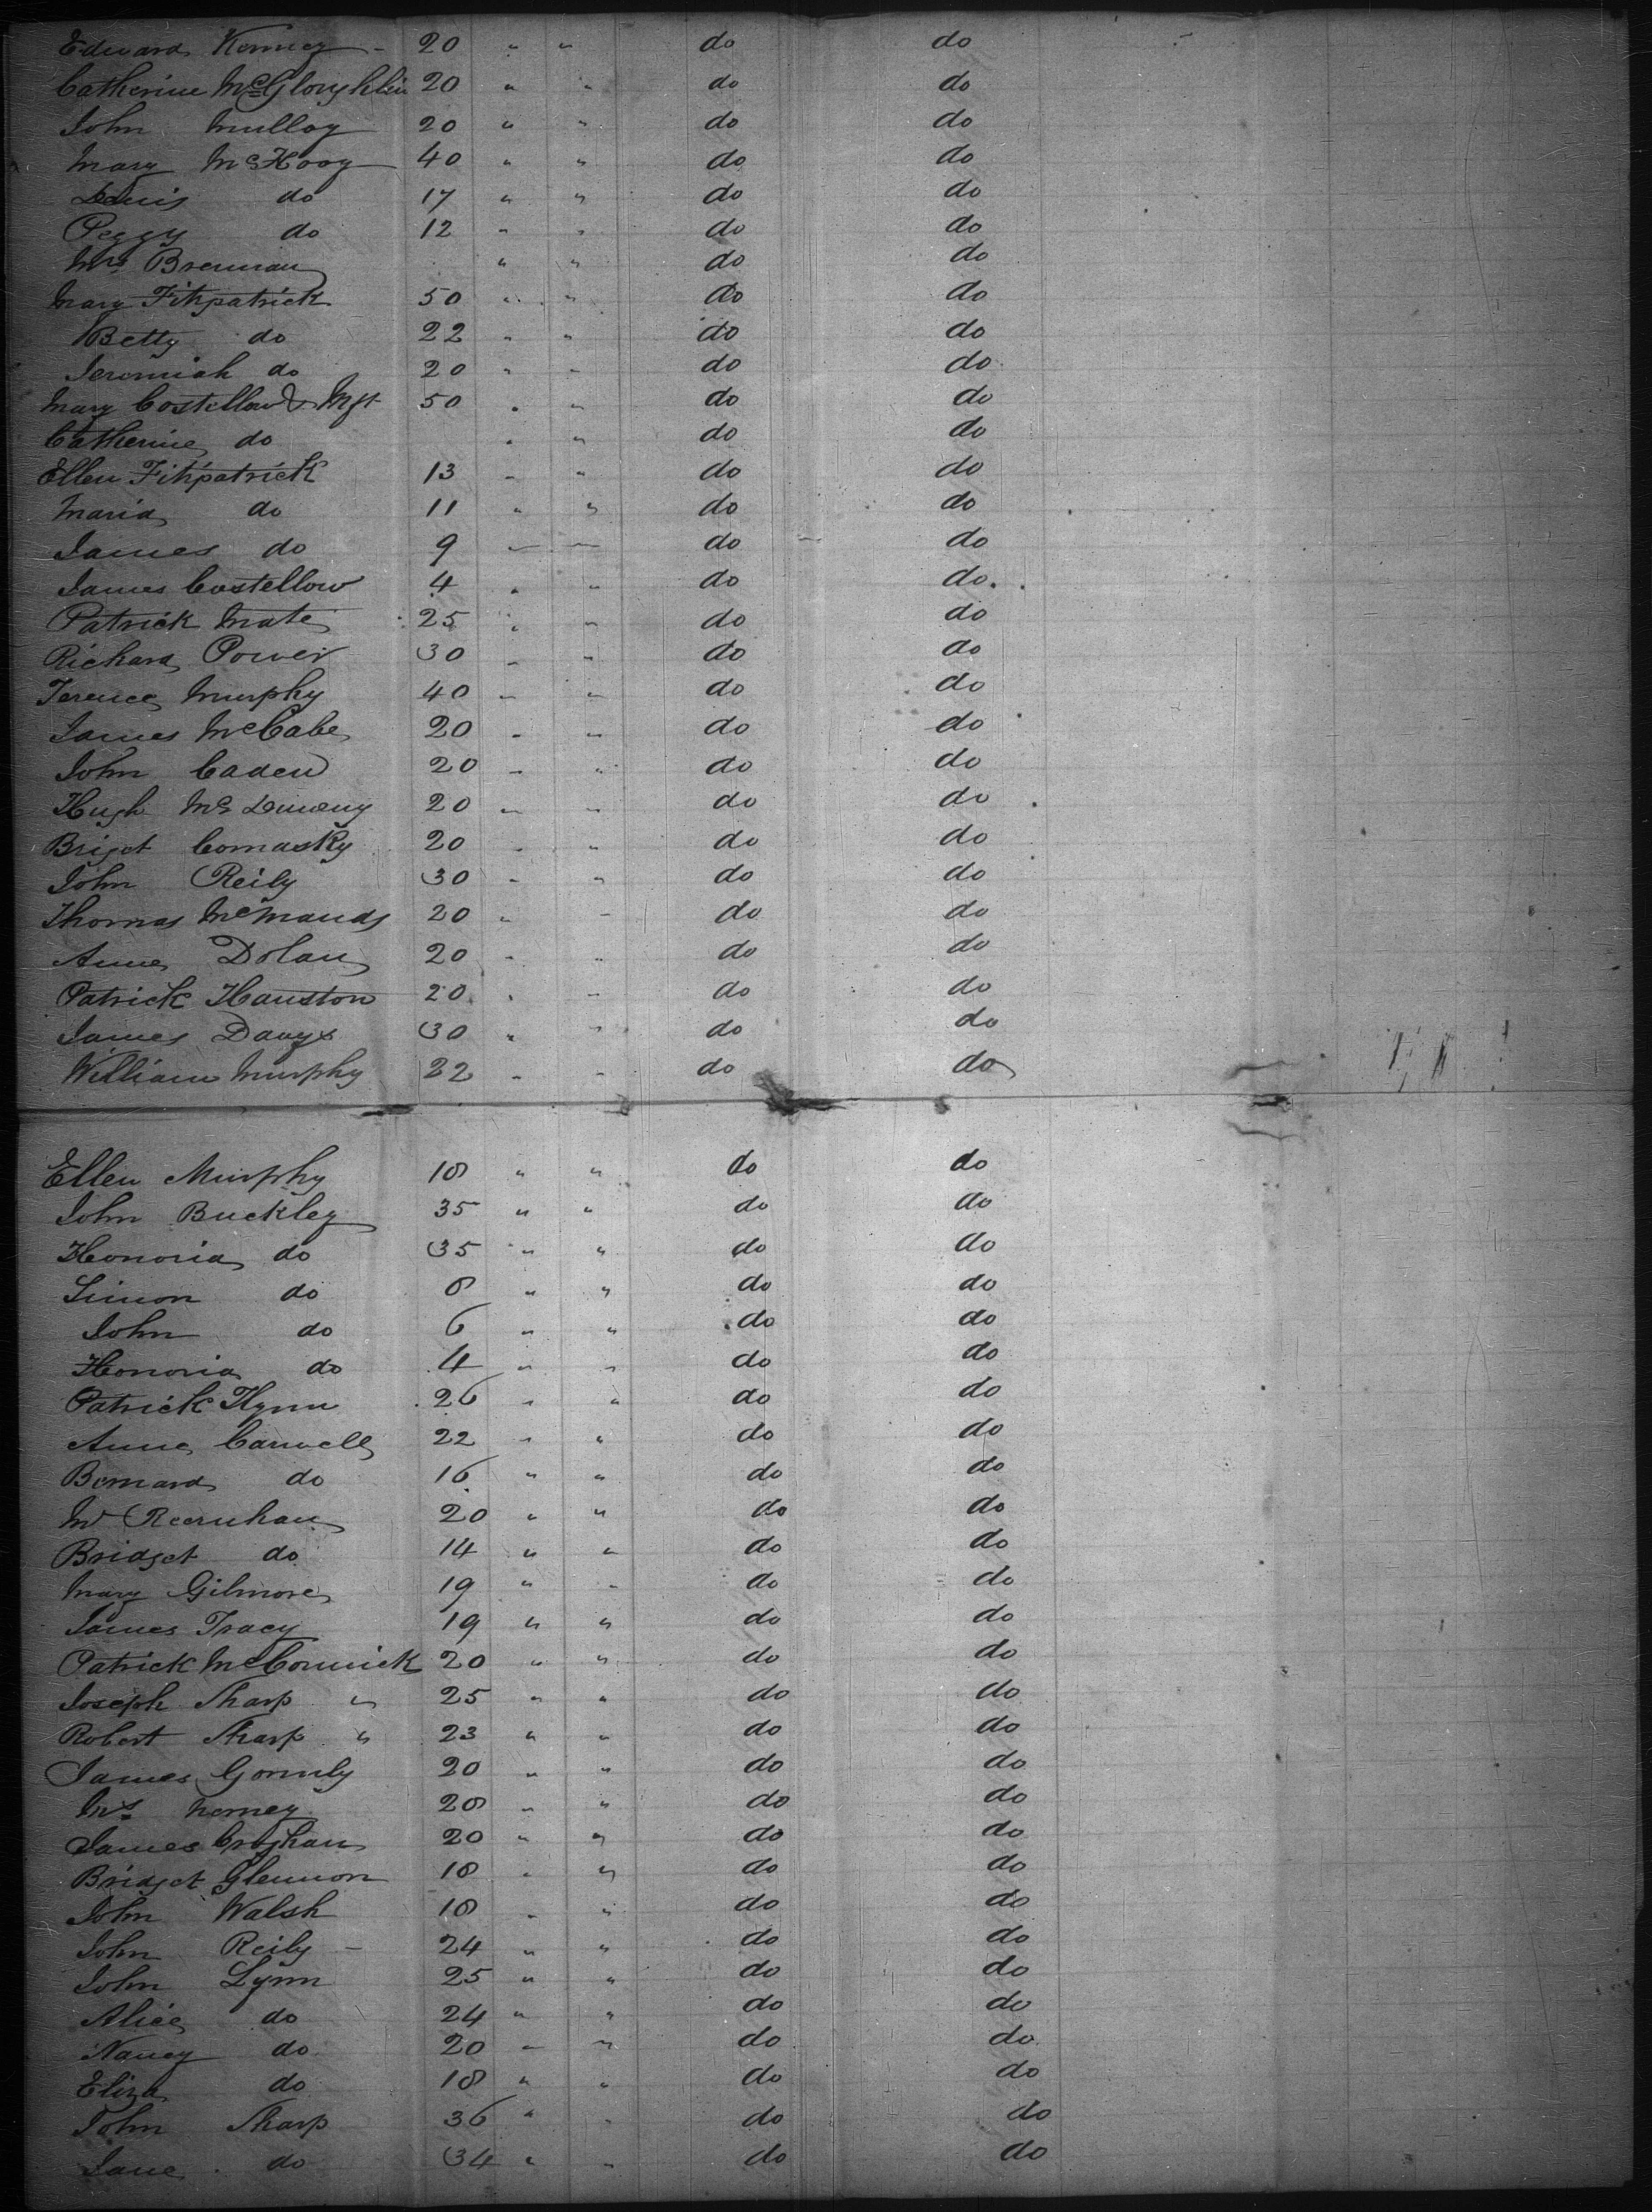 Edward Kenney - 20 " " do do
Catherine McGloughlin 20 " " do do
John Mulloy 20 " " do do
Mary McHooy 40 " " do do
Denis do 17 " " do do
Peggy do 12 " " do do
Mrs Brennan " " do do
Mary Fitzpatrick 50 " " do do
Betty do 22 " " do do
Jeremiah do 20 " " do do
Mary Costellow & Inft 50 " " do do
Catherine do " " do do
Ellen Fitzpatrick 13 " " do do
Maria do 11 " " do do
James do 9 " " do do
James Costellow 4 " " do do
Patrick Mate 25 " " do do
Richard Power 30 " " do do
Terence Murphy 40 " " do do
James McCabe 20 " " do do
John Caden 20 " " do do
Hugh 20 " " do do
Briget Comasky 20 " " do do
John Reily 30 " " do do
Thomas McManus 20 " " do do
Anne Dolan 20 " " do do
Patrick Hauston 20 " " do do
James Davys 30 " " do do
William Murphy 22 " " do do
Ellen Murphy 18 " " do do
John Buckley 35 " " do do
Honoria do 35 " " do do
Simon do 8 " " do do
John do 6 " " do do
Honoria do 4 " " do do
Patrick Flynn 26 " " do do
Anne Carwell 22 " " do do
Bernard do 16 " " do do
20 " " do do
Bridget do 14 " " do do
Mary Gilmore 19 " " do do
James Tracy 19 " " do do
Patrick McCormick 20 " " do do
Joseph Sharp " 25 " " do do
Robert Sharp " 23 " " do do
James Gormly 20 " " do do
Ms Nerney 28 " " do do
James Croghan 20 " " do do
Bridget Glennon 18 " " do do
John Walsh 18 " " do do
John Reily - 24 " " do do
John Lynn 25 " " do do
Alice do 24 " " do do
Nancy do 20 " " do do
Eliza do 18 " " do do
John Sharp 36 " " do do
Jane do 34 " " do do